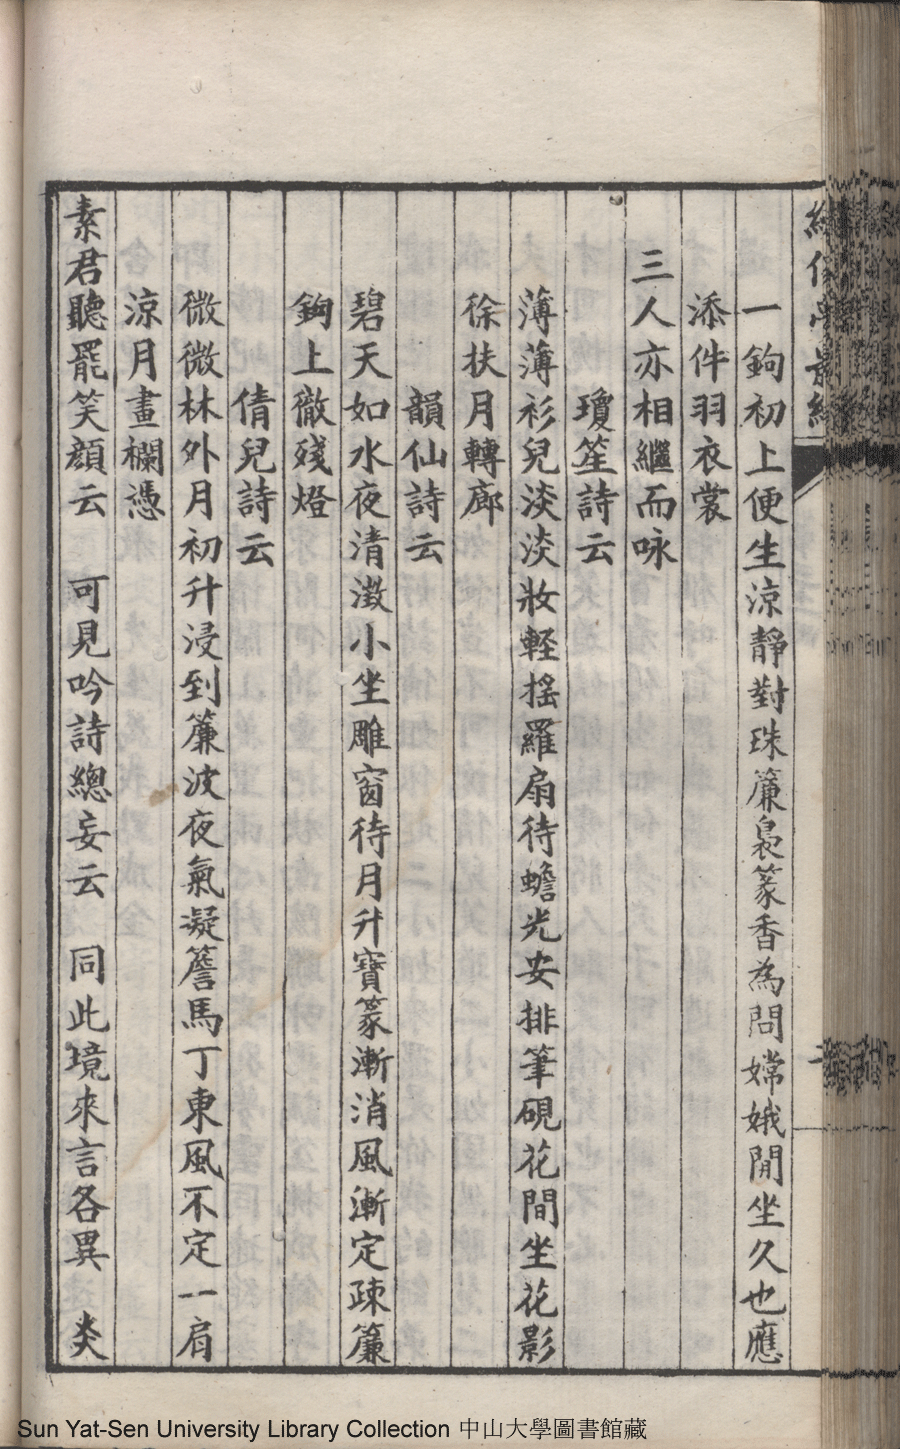 一鉤初上便生涼靜對珠簾裊篆香為問嫦娥閒坐久也應
添件羽衣裳
三人亦相繼而咏
瓊笙詩云
薄薄衫兒淡淡妝輕搖羅扇待蟾光安排筆硯花間坐花影
徐扶月轉廊
韻仙詩云
碧天如水夜清澂小坐雕窗待月升寶篆漸消風漸定疎簾
鉤上徹殘燈
倩兒詩云
微微林外月初升浸到簾波夜氣凝簷馬丁東風不定一肩
涼月畫欄憑
素君聽罷笑顔云 可見吟詩總妄云 同此境來言各異 炎
Sun Yat-Sen University Library Collection 中山大學圖書館藏